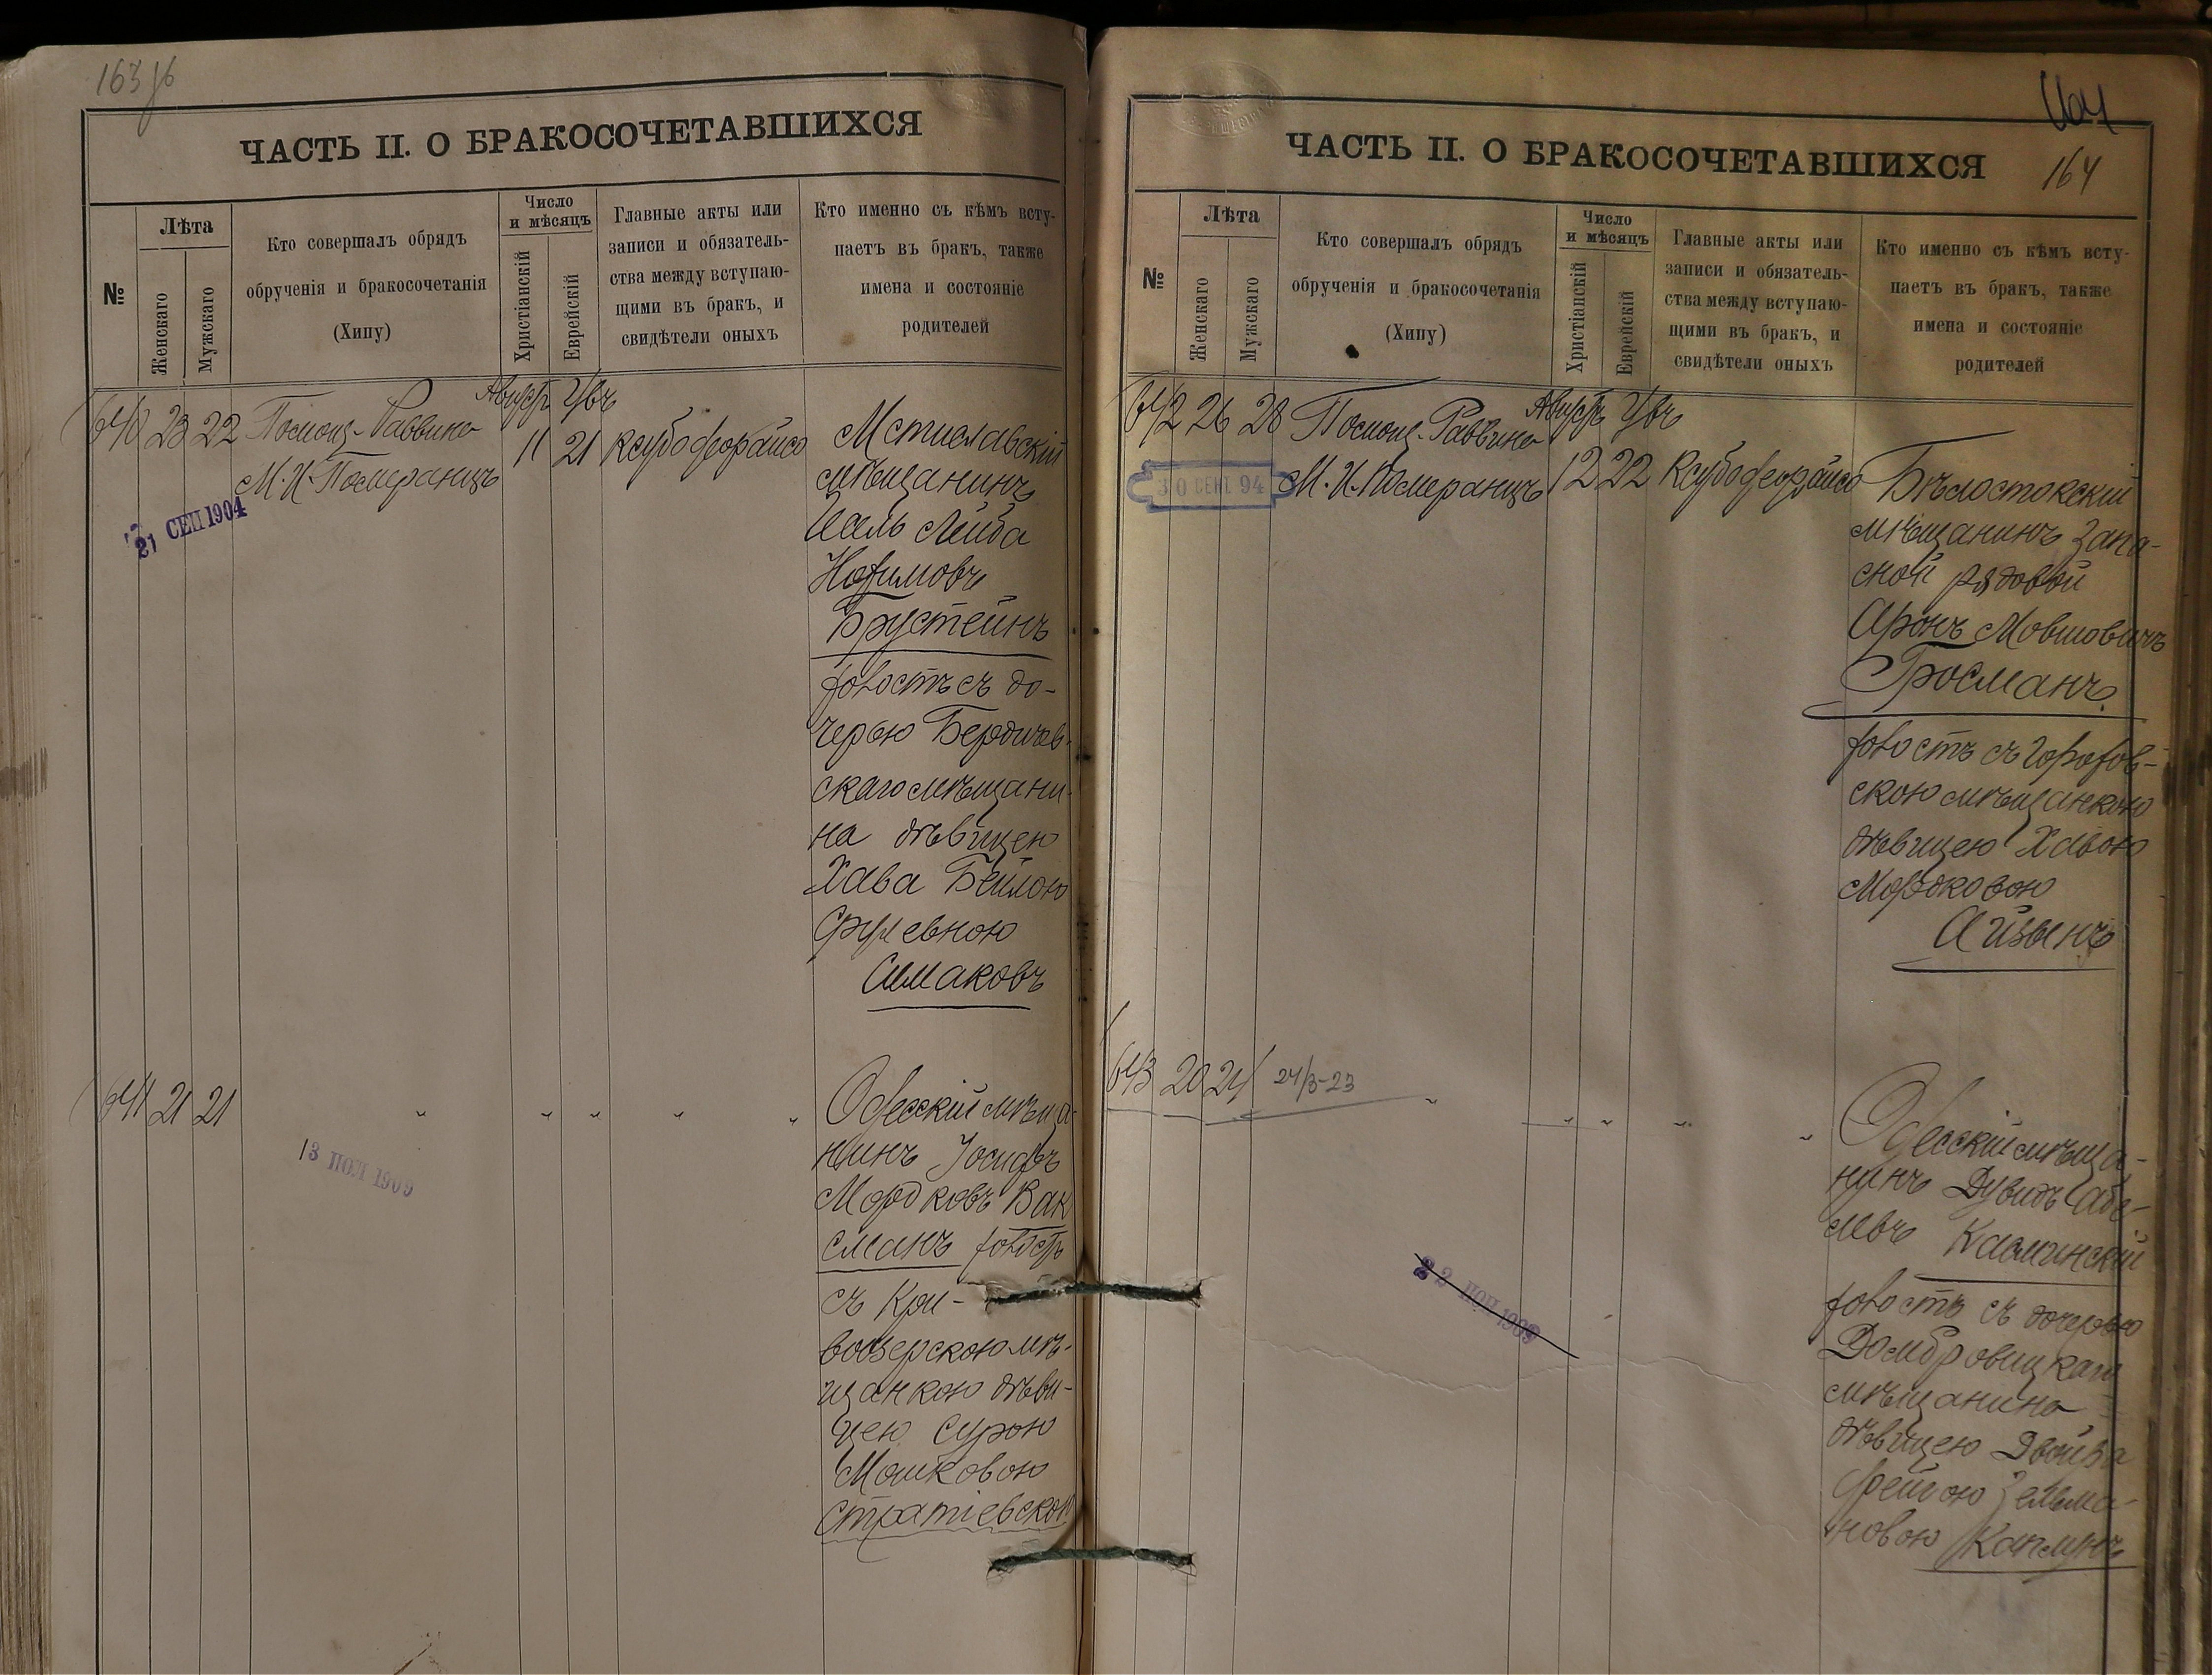 163 об
ЧАСТЬ II. О БРАКОСОЧЕТАВШИХСЯ
№
Лѣта
Женскаго
Мужскаго
Кто совершалъ обрядъ
обрученія и бракосочетанія
(Хипу)
Число
и мѣсяцъ
Христіанскій
Еврейскій
Главные акты или
записи и обязатель-
ства между вступаю-
щими въ бракъ, и
свидѣтели оныхъ
Кто именно съ кѣмъ всту-
паетъ въ бракъ, также
имена и состояніе
родителей
640 23 22 Помощ. Раввина
М. И. Померанцъ
11 21
21 СЕН 1904
Мстиславскій
мѣщанинъ
Лейба
Брустейнъ
холостъ съ до-
черью Бердичев-
скаго мѣщани-
на дѣвицею
Хава Бейлою
Срулевною
Симаковъ
641 21 21 " " " " "
13 ПОЛ 1909
Одесскій мѣща-
нинъ Іосифъ
Мордковъ Вак
сманъ холостъ
съ Кри-
воозерскою мѣ-
щанкою дѣви-
цею Сурою
Мошковою
Стратіевскою
164
ЧАСТЬ II. О БРАКОСОЧЕТАВШИХСЯ
№
Лѣта
Женскаго
Мужскаго
Кто совершалъ обрядъ
обрученія и бракосочетанія
(Хипу)
Число
и мѣсяцъ
Христіанскій
Еврейскій
Главные акты или
записи и обязатель-
ства между вступаю-
щими въ бракъ, и
свидѣтели оныхъ
Кто именно съ кѣмъ всту-
паетъ въ бракъ, также
имена и состояніе
родителей
642 26 28 Помощ. Раввина
М. И. Померанцъ
12 22
30 СЕНТ. 94
Бѣлостокскій
мѣщанинъ запа-
сной рядовой
Аронъ Мовшовичъ
Гросманъ
холостъ съ
скою мѣщанкою
дѣвицею Хавою
Мордковою
Айзенъ
643 20 24 24/3-23 " " " " "
22 ПОЛ 1909
Одесскій мѣща-
нинъ Дувидъ Абе-
левъ Каминскій
холостъ съ дочерью
Домбровицкаго
мѣщанина
дѣвицею Двойра
Фейгою Зельма-
новою Каплунъ